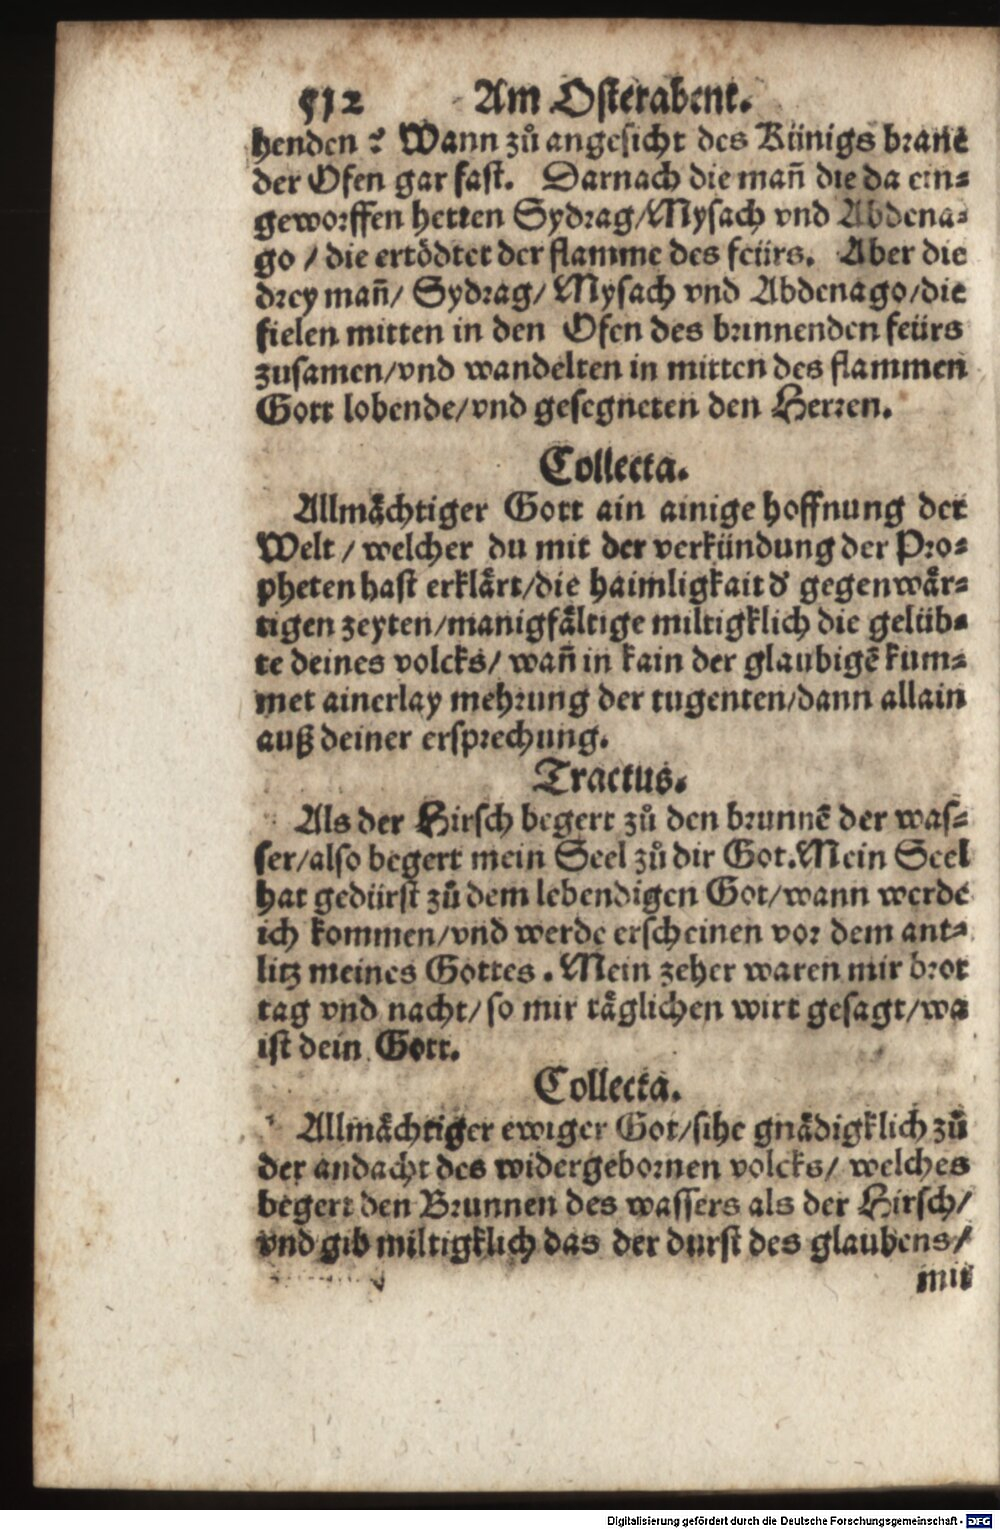 512 Am Osterabent.
henden? Wann zů angesicht des Künigs brañe
der Ofen gar fast. Darnach die mañ die da ein-
geworffen hetten Sydrag/Mysach vnd Abdena-
go / die ertödtet der flamme des feürs. Aber die
drey mañ/ Sydrag/ Mysach vnd Abdenago/die
fielen mitten in den Ofen des brinnenden feürs
zusamen/vnd wandelten in mitten des flammen
Gott lobende/vnd gesegneten den Herren.
Collecta.
Allmächtiger Gott ain ainige hoffnung der
Welt / welcher du mit der verkündung der Pro-
pheten hast erklärt/die haimligkait d' gegenwär-
tigen zeyten/manigfältige miltigklich die gelüb-
te deines volcks/ wañ in kain der glaubigē kum-
met ainerlay mehrung der tugenten/dann allain
auß deiner ersprechung.
Tractus.
Als der Hirsch begert zů den brunnē der was-
ser/also begert mein Seel zů dir Got. Mein Seel
hat gedürst zů dem lebendigen Got/wann werde
ich kommen/vnd werde erscheinen vor dem ant-
litz meines Gottes. Mein zeher waren mir brot
tag vnd nacht/ so mir täglichen wirt gesagt/wa
ist dein Gott.
Collecta.
Allmächtiger ewiger Got/sihe gnädigklich zů
der andacht des widergebornen volcks/ welches
begert den Brunnen des wassers als der Hirsch/
vnd gib miltigklich das der durst des glaubens/
mit
Digitalisierung gefördert durch die Deutsche Forschungsgemeinschaft - DFG